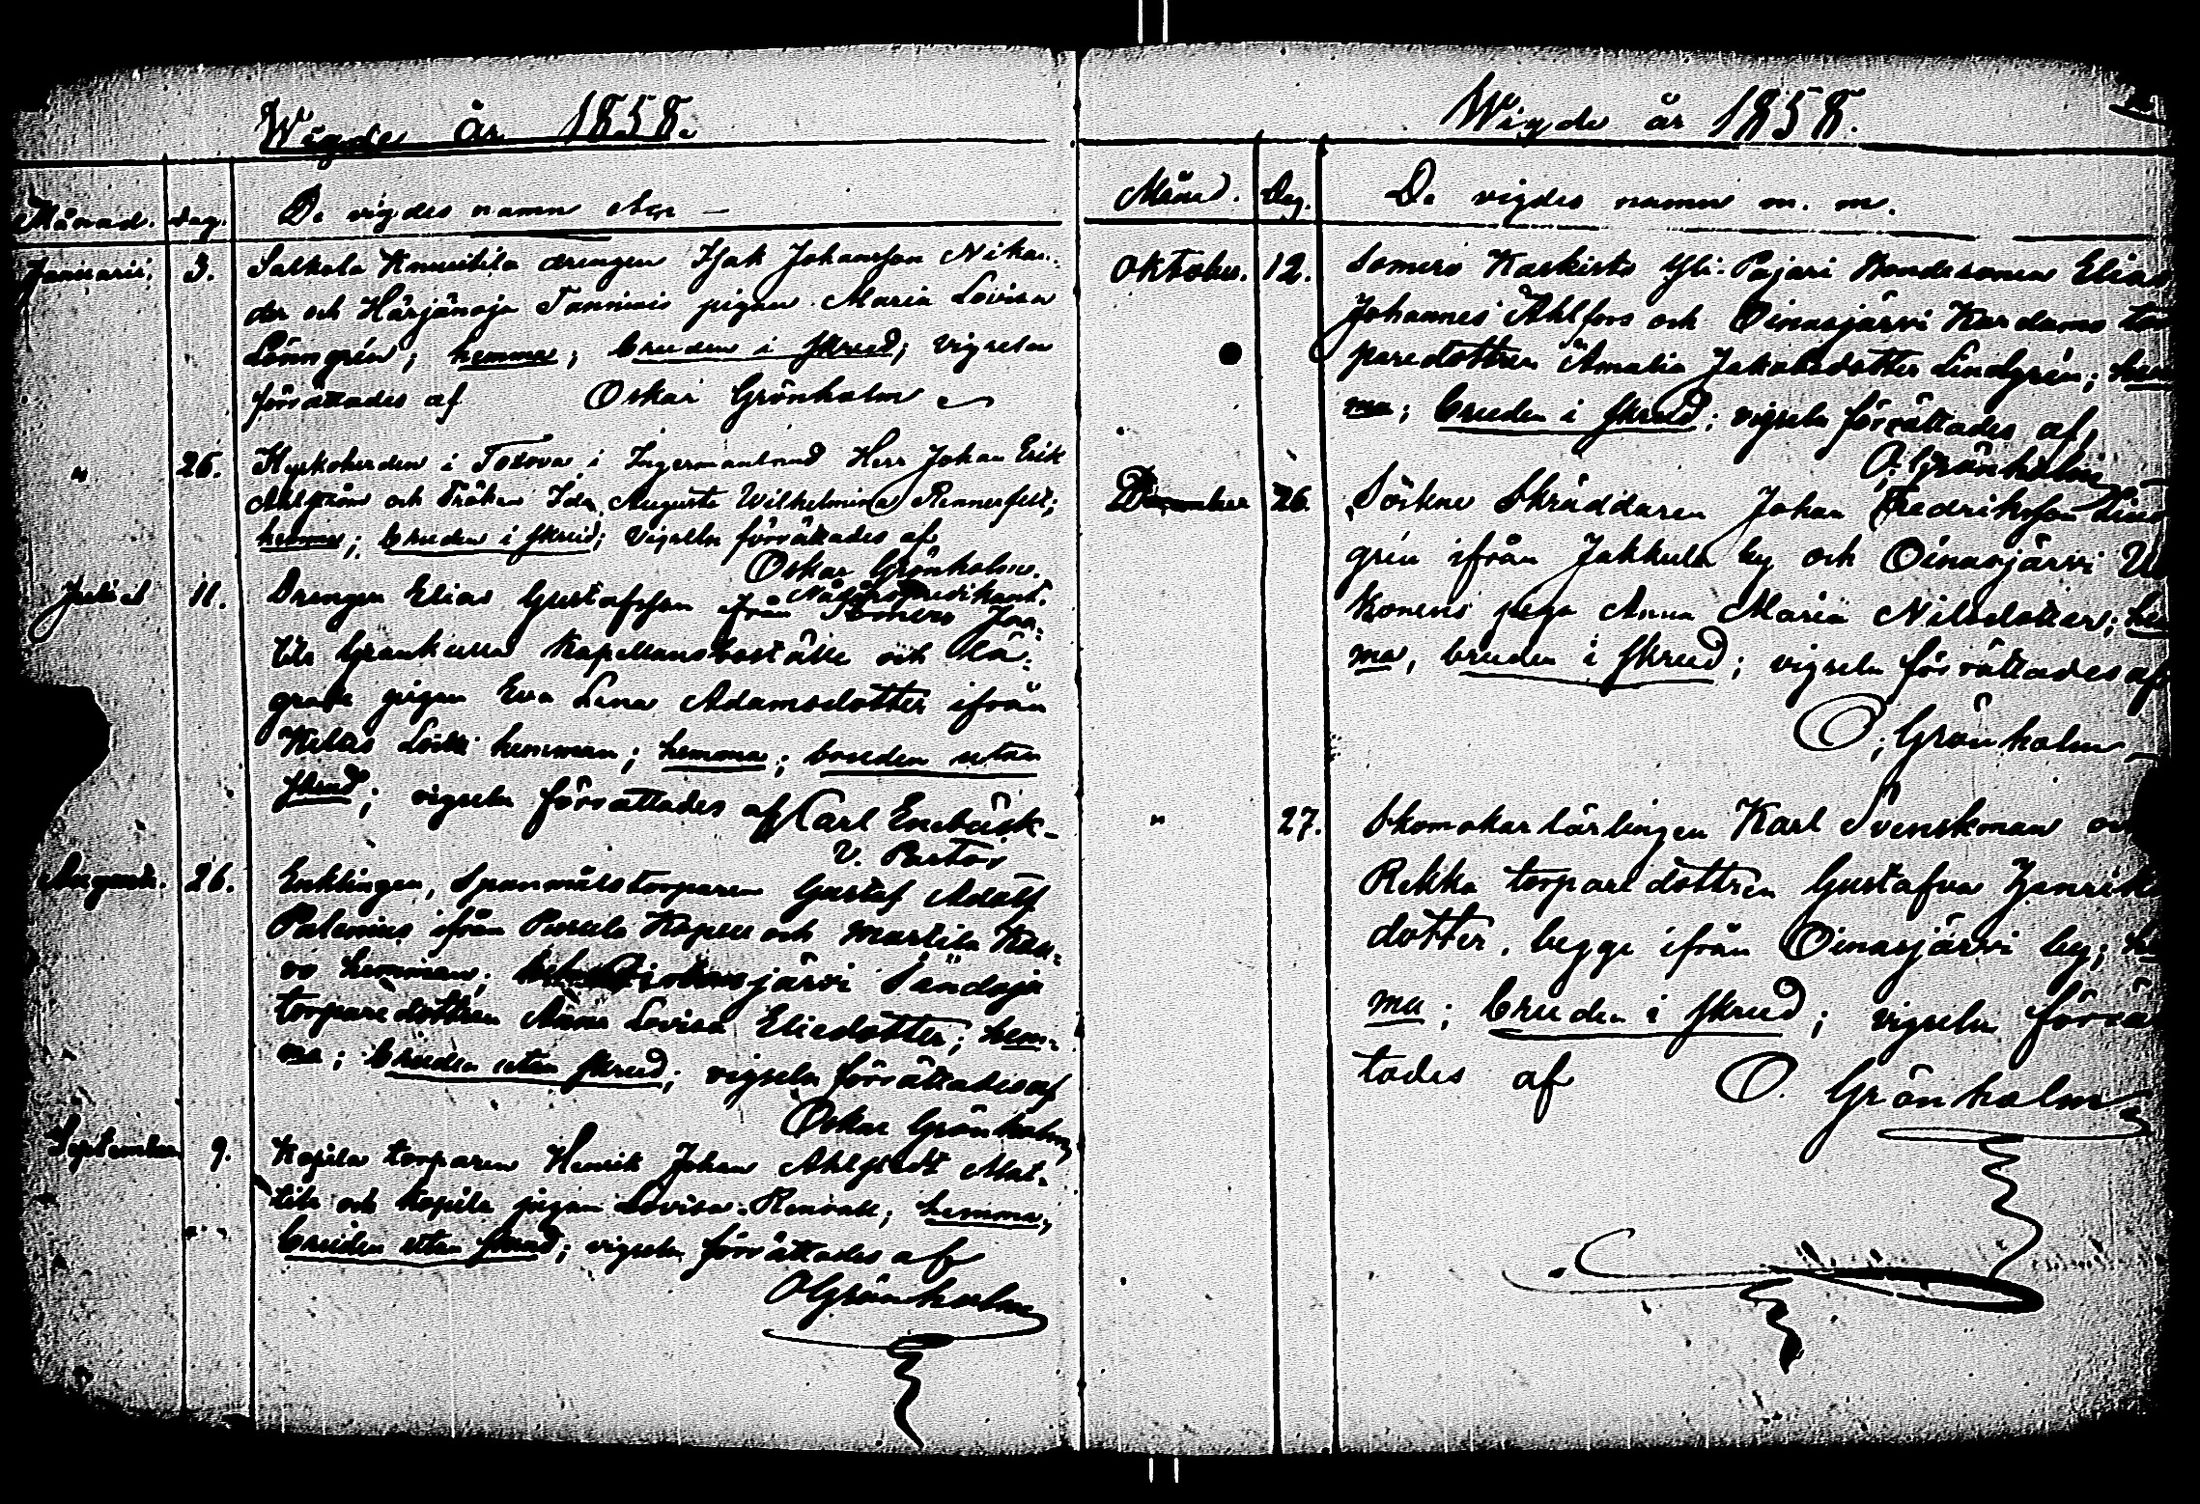 Wigde år 1858.
Månad. Dag. De vigdes namn etc. —
Januarii. 3. Salkola Knuutila drengen Isak Johansson Nikan-
der och Härjänoja Tanninis pigan Maria Lovisa
Lönngrén; hemma; bruden i skrud; vigseln
förrättades af Oskar Grönholm
" 26. Kyrkoherden i Toxova i Ingermanland Herr Johan Erik
Ahlström och Fröken Ida Augusta Wilhelmina Rennerfelt;
hemma; bruden i skrud; vigseln förrättades af
Oskar Grönholm.
Nådårspredikant.
Julii 11. Drengen Elias Gustafsson ifrån Somero Jaa-
tila Grankulla Kapellansboställe och
pigan Eva Lena Adamsdotter ifrån
hemman; hemma; bruden utan
skrud; vigseln förrättades af Carl Enebäck
V. Pastor
Augusti. 26. Enklingen, Spanmålstorparen Gustaf Adolf
Palenius ifrån Pusula Kapell och Marttila
hemman; järvi
torparedottren Anna Lovisa Eliedotter; hem-
ma; bruden utan skrud; vigseln förrättades af
Oskar Grönholm
September 9. Kopila torparen Henrik Johan Ahlstedt Mat-
tila och Kopila pigan Lovisa Renvall; hemma;
bruden utan skrud; vigseln förrättades af
O Grönholm
Wigde år 1858.
Månad. Dag. De vigdes namn m. m.
Oktober. 12. Somero Kaskisto Yli-Pajari Bondesonen Elias
Johannes Ahlfors och Oinasjärvi Kardams tor
paredottren Amalia Jakobsdotter Lindgrén; hem
ma; bruden i skrud; vigseln förrättades af
O. Grönholm
December 26. Sockne Skräddaren Johan Fredriksson Lind
grén ifrån Jakkula by och Oinasjärvi
piga Anna Maria Nilsdotter; hem
ma, bruden i skrud; vigseln förrättades af
O. Grönholm
" 27. Skomakarlärlingen Karl Svenskman och
Rekka torparedottren Gustafva Henriks
dotter, begge ifrån Oinasjärvi by; hem
ma; bruden i skrud; vigseln förrät
tades af O. Grönholm